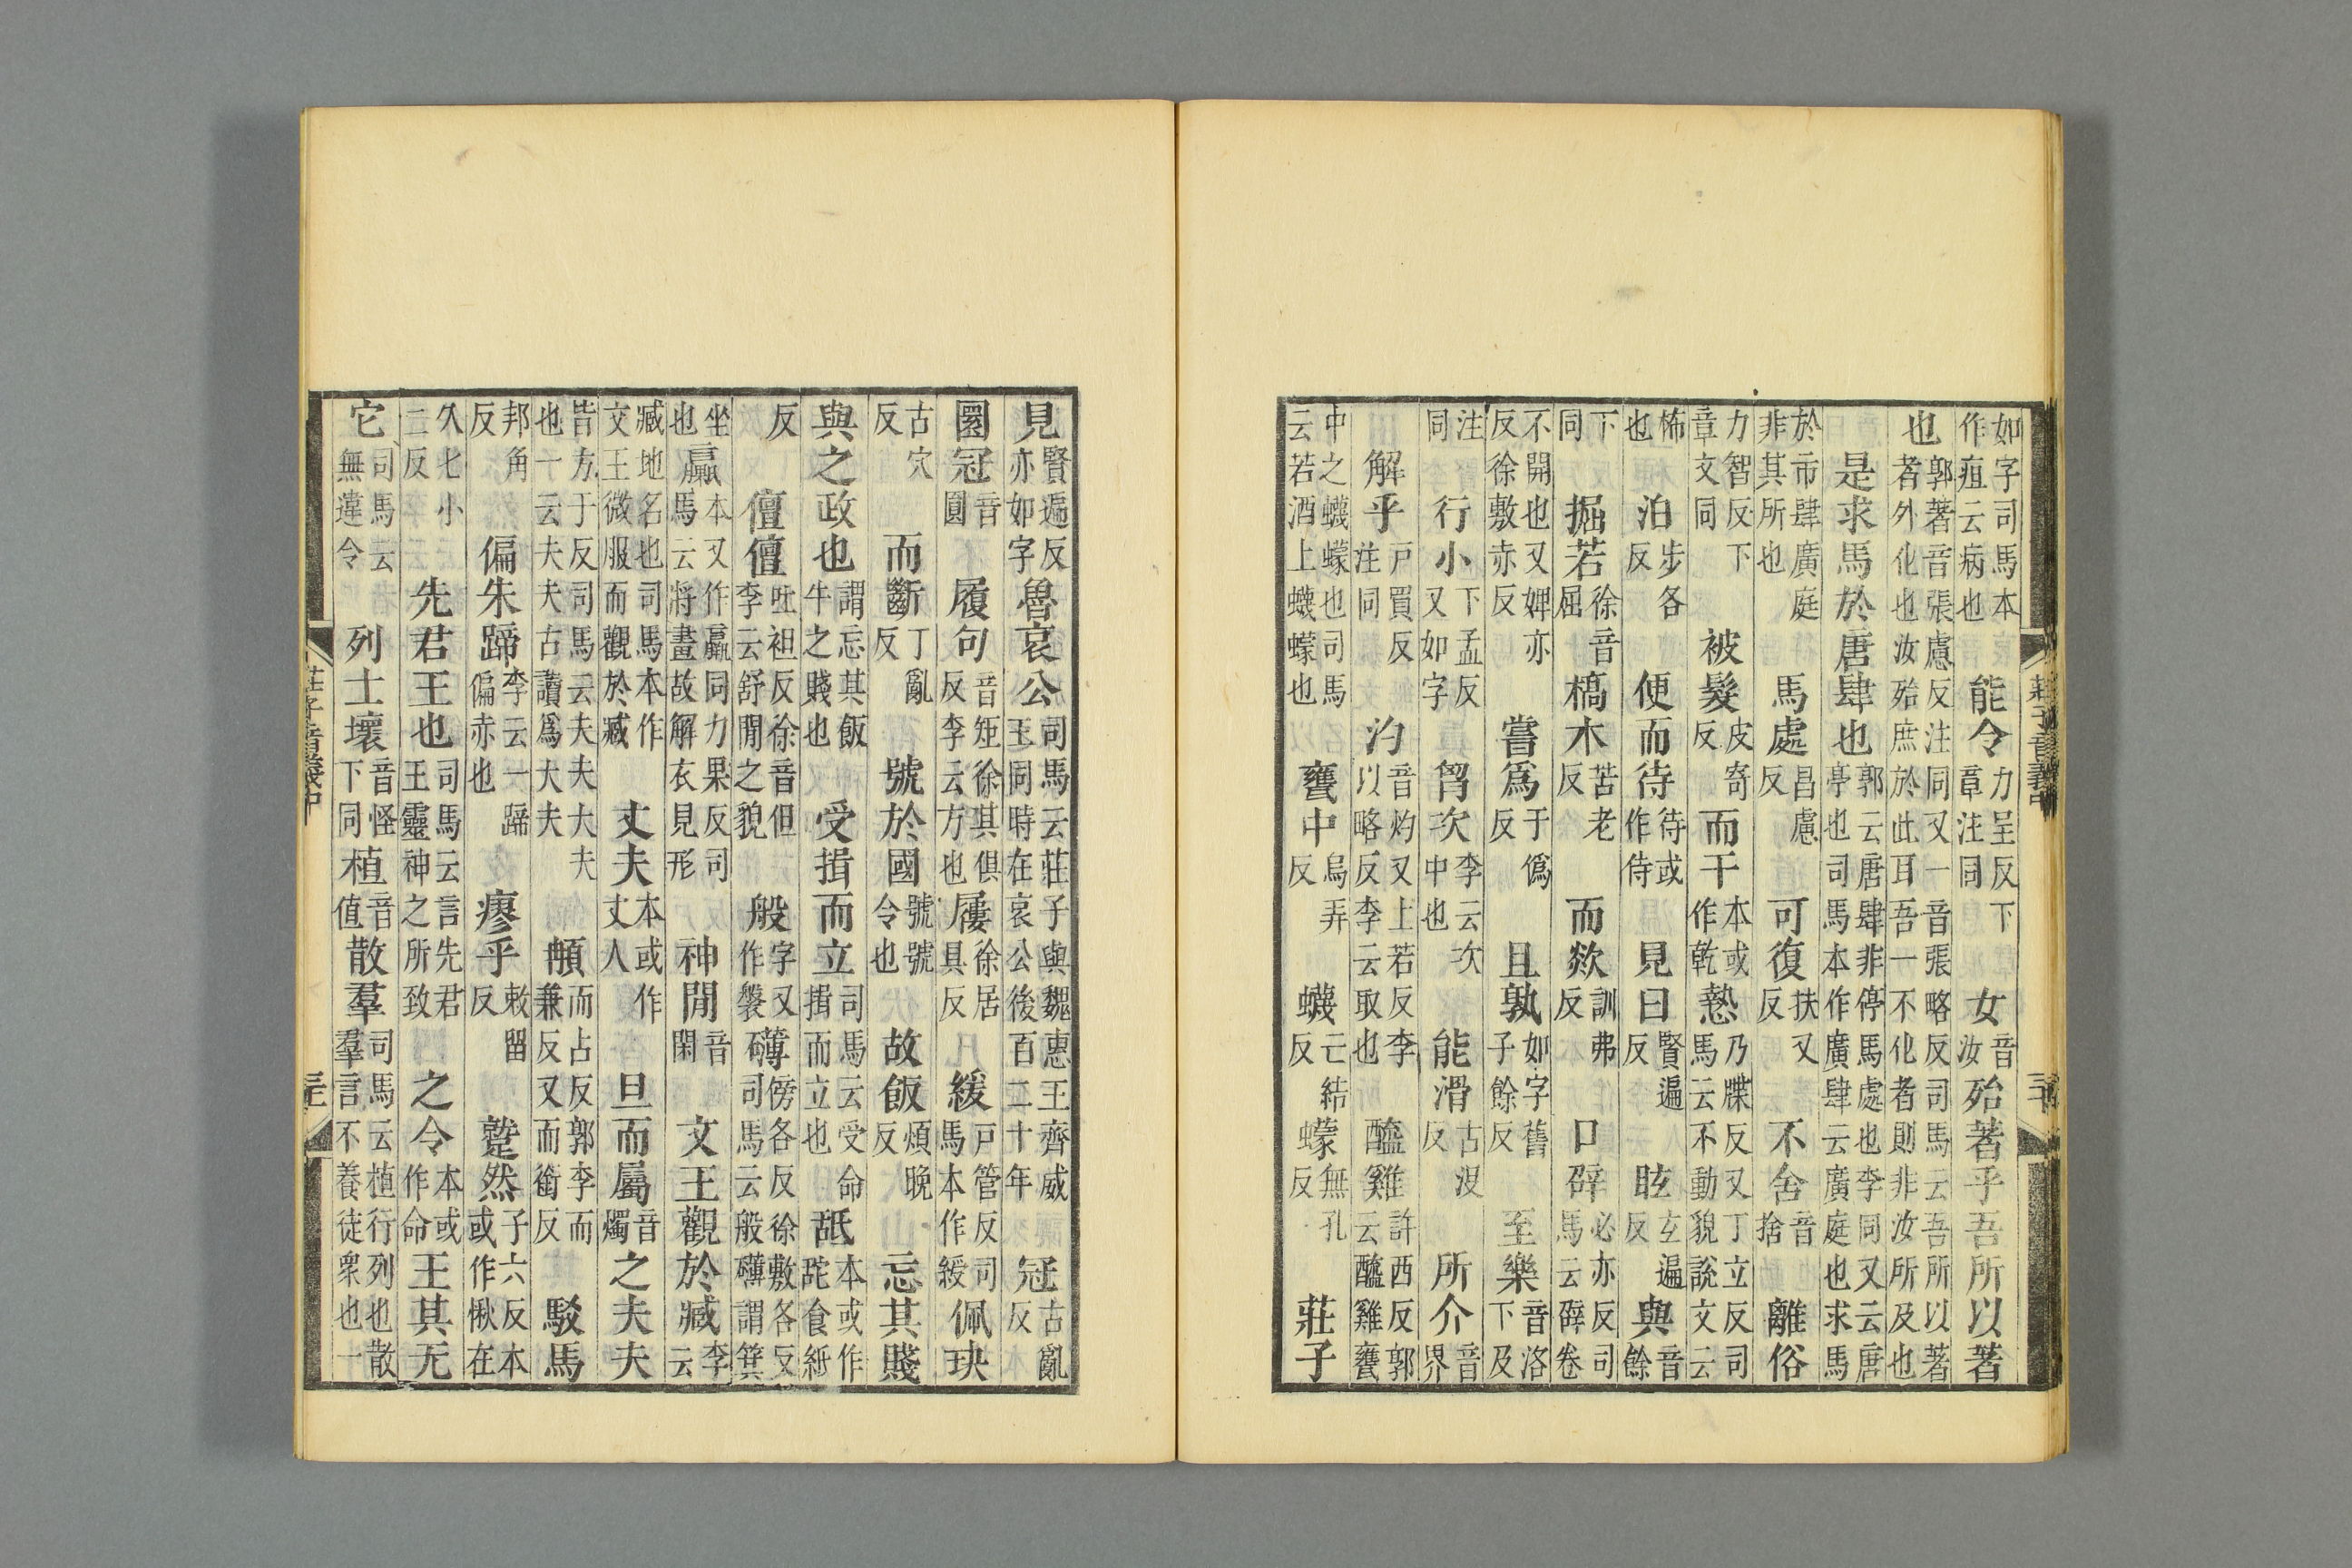 如字司馬本作疽云病也能令力呈反下章注同女音汝殆著乎吾所以著
也郭著音張慮反注同又一音張略反司馬云吾所以著者外化也汝殆庶於此耳吾一不化者則非汝所及也
是求馬於唐肆也郭云唐肆非停馬處也李同又云唐亭也司馬本作廣肆云廣庭也求馬
於市肆廣庭非其所也馬處昌慮反可復扶又反不舍音捨離俗
力智反下章文同被髮皮寄反而干本或作乾慹乃牒反又丁立反司馬云不動貌說文云
怖也泊步各反便而待待或作侍見曰賢遍反眩玄遍反與音餘
下同掘若徐音屈槁木苦老反而欻訓弗反口辟必亦反司馬云辟卷
不開也又婢亦反徐敷赤反嘗爲于僞反且孰如字舊子餘反至樂音洛下及
注同行小下孟反又如字胷次李云次中也能滑古沒反所介音界
解乎戶買反注同汋音灼又上若反李以略反李云取也醯雞許西反郭云醯雞甕
中之蠛蠓也司馬云若酒上蠛蠓也甕中烏弄反蠛亡結反蠓無孔反莊子
莊子音義中
二十
見賢遍反亦如字魯哀公司馬云莊子與魏惠王齊威王同時在哀公後百二十年冠古亂反
圜冠音圓履句音矩徐其俱反李云方也屨徐居具反緩戶管反司馬本作綬佩玦
古穴反而斷丁亂反號於國號號令也故飯煩晚反忘其賤
與之政也謂忘其飯牛之賤也受揖而立司馬云受命揖而立也舐本或作䑛食紙
反儃儃吐袒反徐音但李云舒閒之貌般字又作褩礴傍各反徐敷各反司馬云般礴謂箕
坐也臝本又作臝同力果反司馬云將畫故解衣見形神閒音閑文王觀於臧李云
臧地名也司馬本作文王微服而觀於臧丈夫本或作丈人旦而屬音燭之夫夫
皆方于反司馬云夫夫大夫也一云夫夫古讀爲大夫𩑺而占反郭李而兼反又而銜反駁馬
邦角反偏朱蹄李云一蹄偏赤也瘳乎敕留反蹵然子六反本或作愀在
久七小二反先君王也司馬云言先君王靈神之所致之令本或作命王其无
它司馬云無違令列士壞音怪下同植音值散羣司馬云植行列也散羣言不養徒衆也一
莊子音義中
三